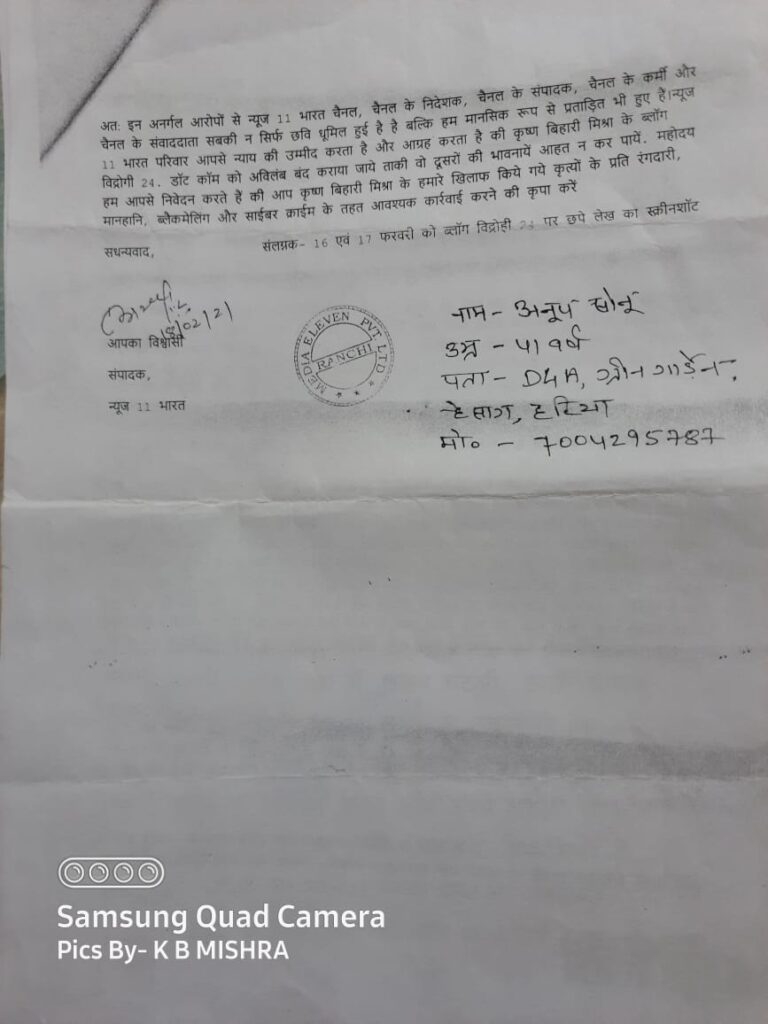 अतः इन अनर्गल आरोपों से न्यूज 11 भारत चैनल, चैनल के निदेशक, चैनल के संपादक, चैनल के कर्मी और
चैनल के संवाददाता सबकी न सिर्फ छवि धूमिल हुई है है बल्कि हम मानसिक रूप से प्रताड़ित भी हुए हैं।न्यूज
11 भारत परिवार आपसे न्याय की उम्मीद करता है और आग्रह करता है की कृष्ण बिहारी मिश्रा के ब्लॉग
विद्रोगी 24. डॉट कॉम को अविलंब बंद कराया जाये ताकी वो दूसरों की भावनायें आहत न कर पायें. महोदय
हम आपसे निवेदन करते हैं की आप कृष्ण बिहारी मिश्रा के हमारे खिलाफ किये गये कृत्यों के प्रति रंगदारी,
मानहानि, ब्लैकमेलिंग और साईबर क्राईम के तहत आवश्यक कार्रवाई करने की कृपा करें
सधन्यवाद, संलग्नक- 16 एवं 17 फरवरी को ब्लॉग विद्रोही पर छपे लेख का स्क्रीनशॉट
02/21
आपका विश्वासी
संपादक,
न्यूज 11 भारत
MEDIA ELEVEN PVT LTD
RANCHI
नाम - अनूप सोनू
उम्र - 41 वर्ष
पता - D4A, ग्रीन गार्डेन,
हेसाग, हटिया
मो० - 7004295787
Samsung Quad Camera
Pics By- K B MISHRA